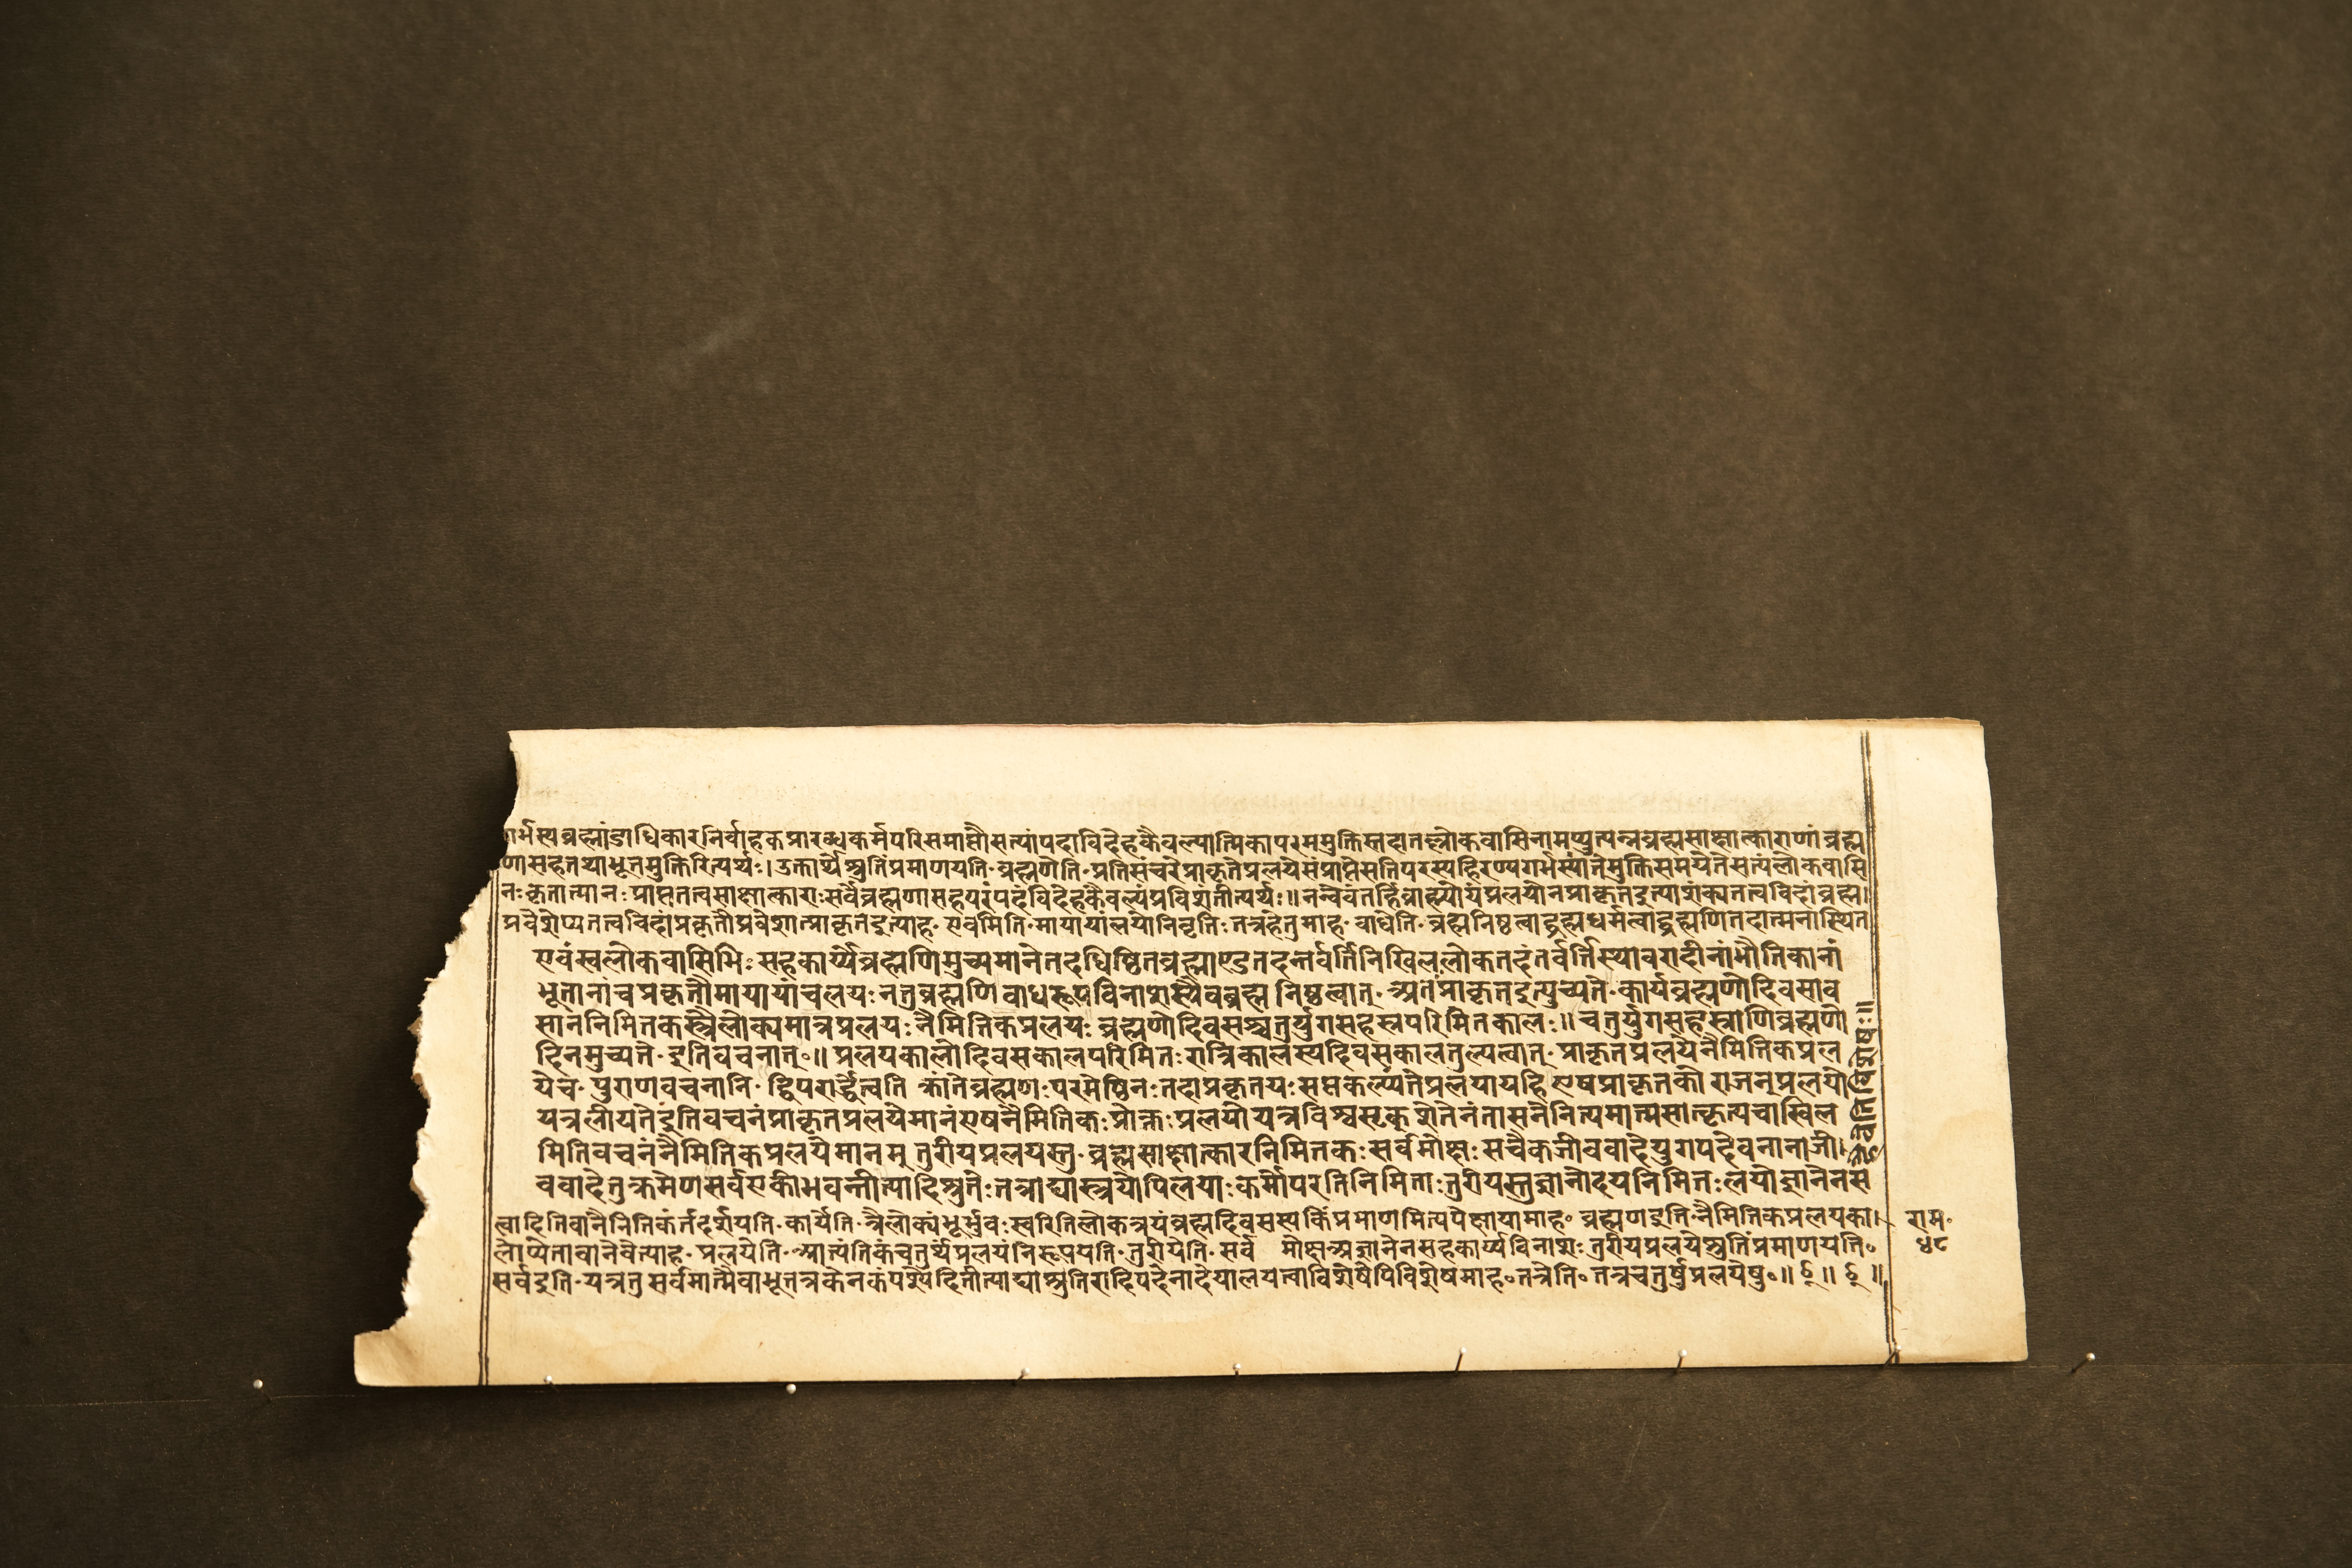 गर्भस्यब्रह्मांडाधिकारनिर्वाहकप्रारब्धकर्मपरिसमाप्तौसत्यांपदाविदेहकैवल्यात्मिकापरममुक्तिस्तदातल्लोकवासिनामप्युत्पन्नब्रह्मसाक्षात्काराणांब्रह्म
णासहतथाभूतमुक्तिरित्यर्थः। उक्तार्थेश्रुतिंप्रमाणयति॰ ब्रह्मणेति॰ प्रतिसंचरेप्राकृतेप्रलयेसंप्राप्तेसतिपरस्यहिरण्यगर्भस्यांतेमुक्तिसमयेतेसत्यलोकवासि
नःकृतात्मानःप्राप्ततत्वसाक्षात्काराःसर्वेब्रह्मणासहपरंपदंविदेहकैवल्यंप्रविशंतीत्यर्थः॥ नन्वेवंतर्हिब्राह्म्योयंप्रलयोनप्राकृतइत्याशंक्यतत्वविदांब्रह्म।
प्रवेशेप्यतत्वविदांप्रकृतौप्रवेशात्प्राकृतइत्याह॰ एवमिति॰ मायायांलयोनिवृत्तिःतत्रहेतुमाह॰ बाधेति॰ ब्रह्मनिष्ठत्वाद्ब्रह्मधर्मत्वाद्ब्रह्मणितदात्मनास्थित
एवंस्वलोकवासिभिःसहकार्य्येब्रह्मणिमुच्यमानेतदधिष्ठितब्रह्माण्डतदन्तर्वर्त्तिनिखिललोकतदंतर्वर्त्तिस्थावरादीनांभौतिकानां
भूतानांचप्रकृतौमायायांचलयःनतुब्रह्मणिबाधरूपविनाशस्यैवब्रह्मनिष्ठत्वात्॰ अतःप्राकृतइत्युच्यते॰ कार्यब्रह्मणोदिवसाव
साननिमित्तकस्त्रैलोक्यमात्रप्रलयःनैमित्तिकप्रलयःब्रह्मणोदिवसश्चतुर्युगसहस्रपरिमितकालः॥ चतुर्युगसहस्राणिब्रह्मणो
दिनमुच्यते॰ इतिवचनात्॰॥ प्रलयकालोदिवसकालपरिमितःरात्रिकालस्यदिवसकालतुल्यत्वात्॰ प्राकृतप्रलयेनैमित्तिकप्रल
येच॰ पुराणवचनानि॰ द्विपरार्द्धेत्वतिक्रांतेब्रह्मणःपरमेष्ठिनःतदाप्रकृतयःसप्तकल्प्यंतेप्रलयायहिएषप्राकृतकोराजन्प्रलयो
यत्रलीयतेइतिवचनंप्राकृतप्रलयेमानंएषनैमित्तिकःप्रोक्तःप्रलयोयत्रविश्वसृक्शेतेनंतासनेनित्यमात्मसात्कृत्यचाखिल
मितिवचनंनैमित्तिकप्रलयेमानम्तुरीयप्रलयस्तु॰ ब्रह्मसाक्षात्कारनिमित्तकःसर्वमोक्षःसचैकजीववादेयुगपदेवनानाजी।
ववादेतुक्रमेणसर्वएकीभवन्तीत्यादिश्रुतेःतत्राद्यास्त्रयोपिलयाःकर्मोपरतिनिमित्ताःतुरीयस्तुज्ञानोदयनिमित्तःलयोज्ञानेनस
त्वादितिवानैमित्तिकंतंदर्शयति॰ कार्येति॰ त्रैलोक्यंभूर्भुवःस्वरितिलोकत्रयंब्रह्मदिवसस्यकिंप्रमाणमित्यपेक्षायामाह॰ ब्रह्मणइति॰ नैमित्तिकप्रलयका।
लोप्येतावानेवेत्याह॰ प्रलयेति॰ आत्यंतिकंचतुर्थंप्रलयंनिरूपयति॰ तुरीयेति॰ सर्व मोक्षःअज्ञानेनसहकार्य्यविनाशःतुरीयप्रलयेश्रुतिंप्रमाणयति॰
सर्वइति॰ यत्रतुसर्वमात्मैवाभूतत्रकेनकंपश्येदितीत्याद्याश्रुतिरादिपदेनादेयालयत्वाविशेषेपिविशेषमाह॰ तत्रेति॰ तत्रचतुर्षुप्रलयेषु॰॥
राम॰
५८